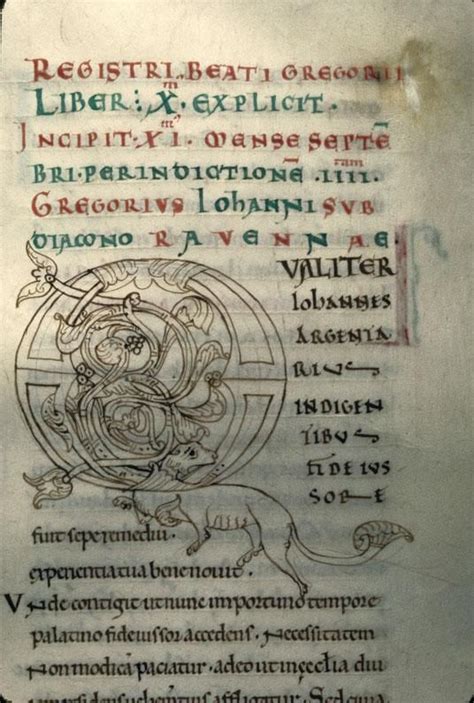 REGISTRI. BEATI GREGORII
LIBER : X̊ᵐ. EXPLICIT.
INCIPIT. XIᵐ MENSE SEPTĒ
BRI. PER INDICTIONĒ. IIIIᵗᵃᵐ.
GREGORIVS IOHANNI SVB
DIACONO RAVENNAE.
QVALITER
IOHANNES
ARGENTA
RIVS
INDIGEN
TIBVS
FIDEIVS
SORE
fuit sepe remediu.
experientia tua bene novit.
Unde contigit ut nunc importuno tempore
palatino fideiussor accedens. Necessitatem
Non modicā paciatur. adeo ut in ęcclia diu
affligatur. Sed quia